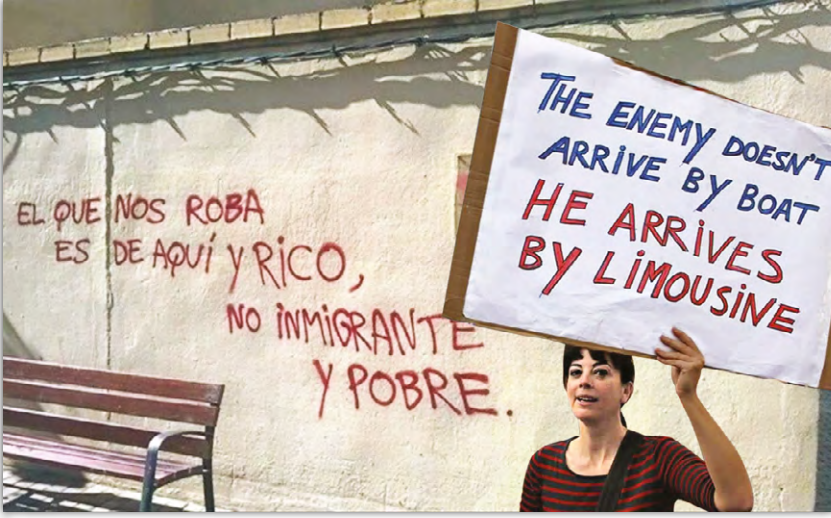 EL QUE NOS ROBA
ES DE AQUÍ Y RICO,
NO INMIGRANTE
Y POBRE.
THE ENEMY DOESN'T
ARRIVE BY BOAT
HE ARRIVES
BY LIMOUSINE